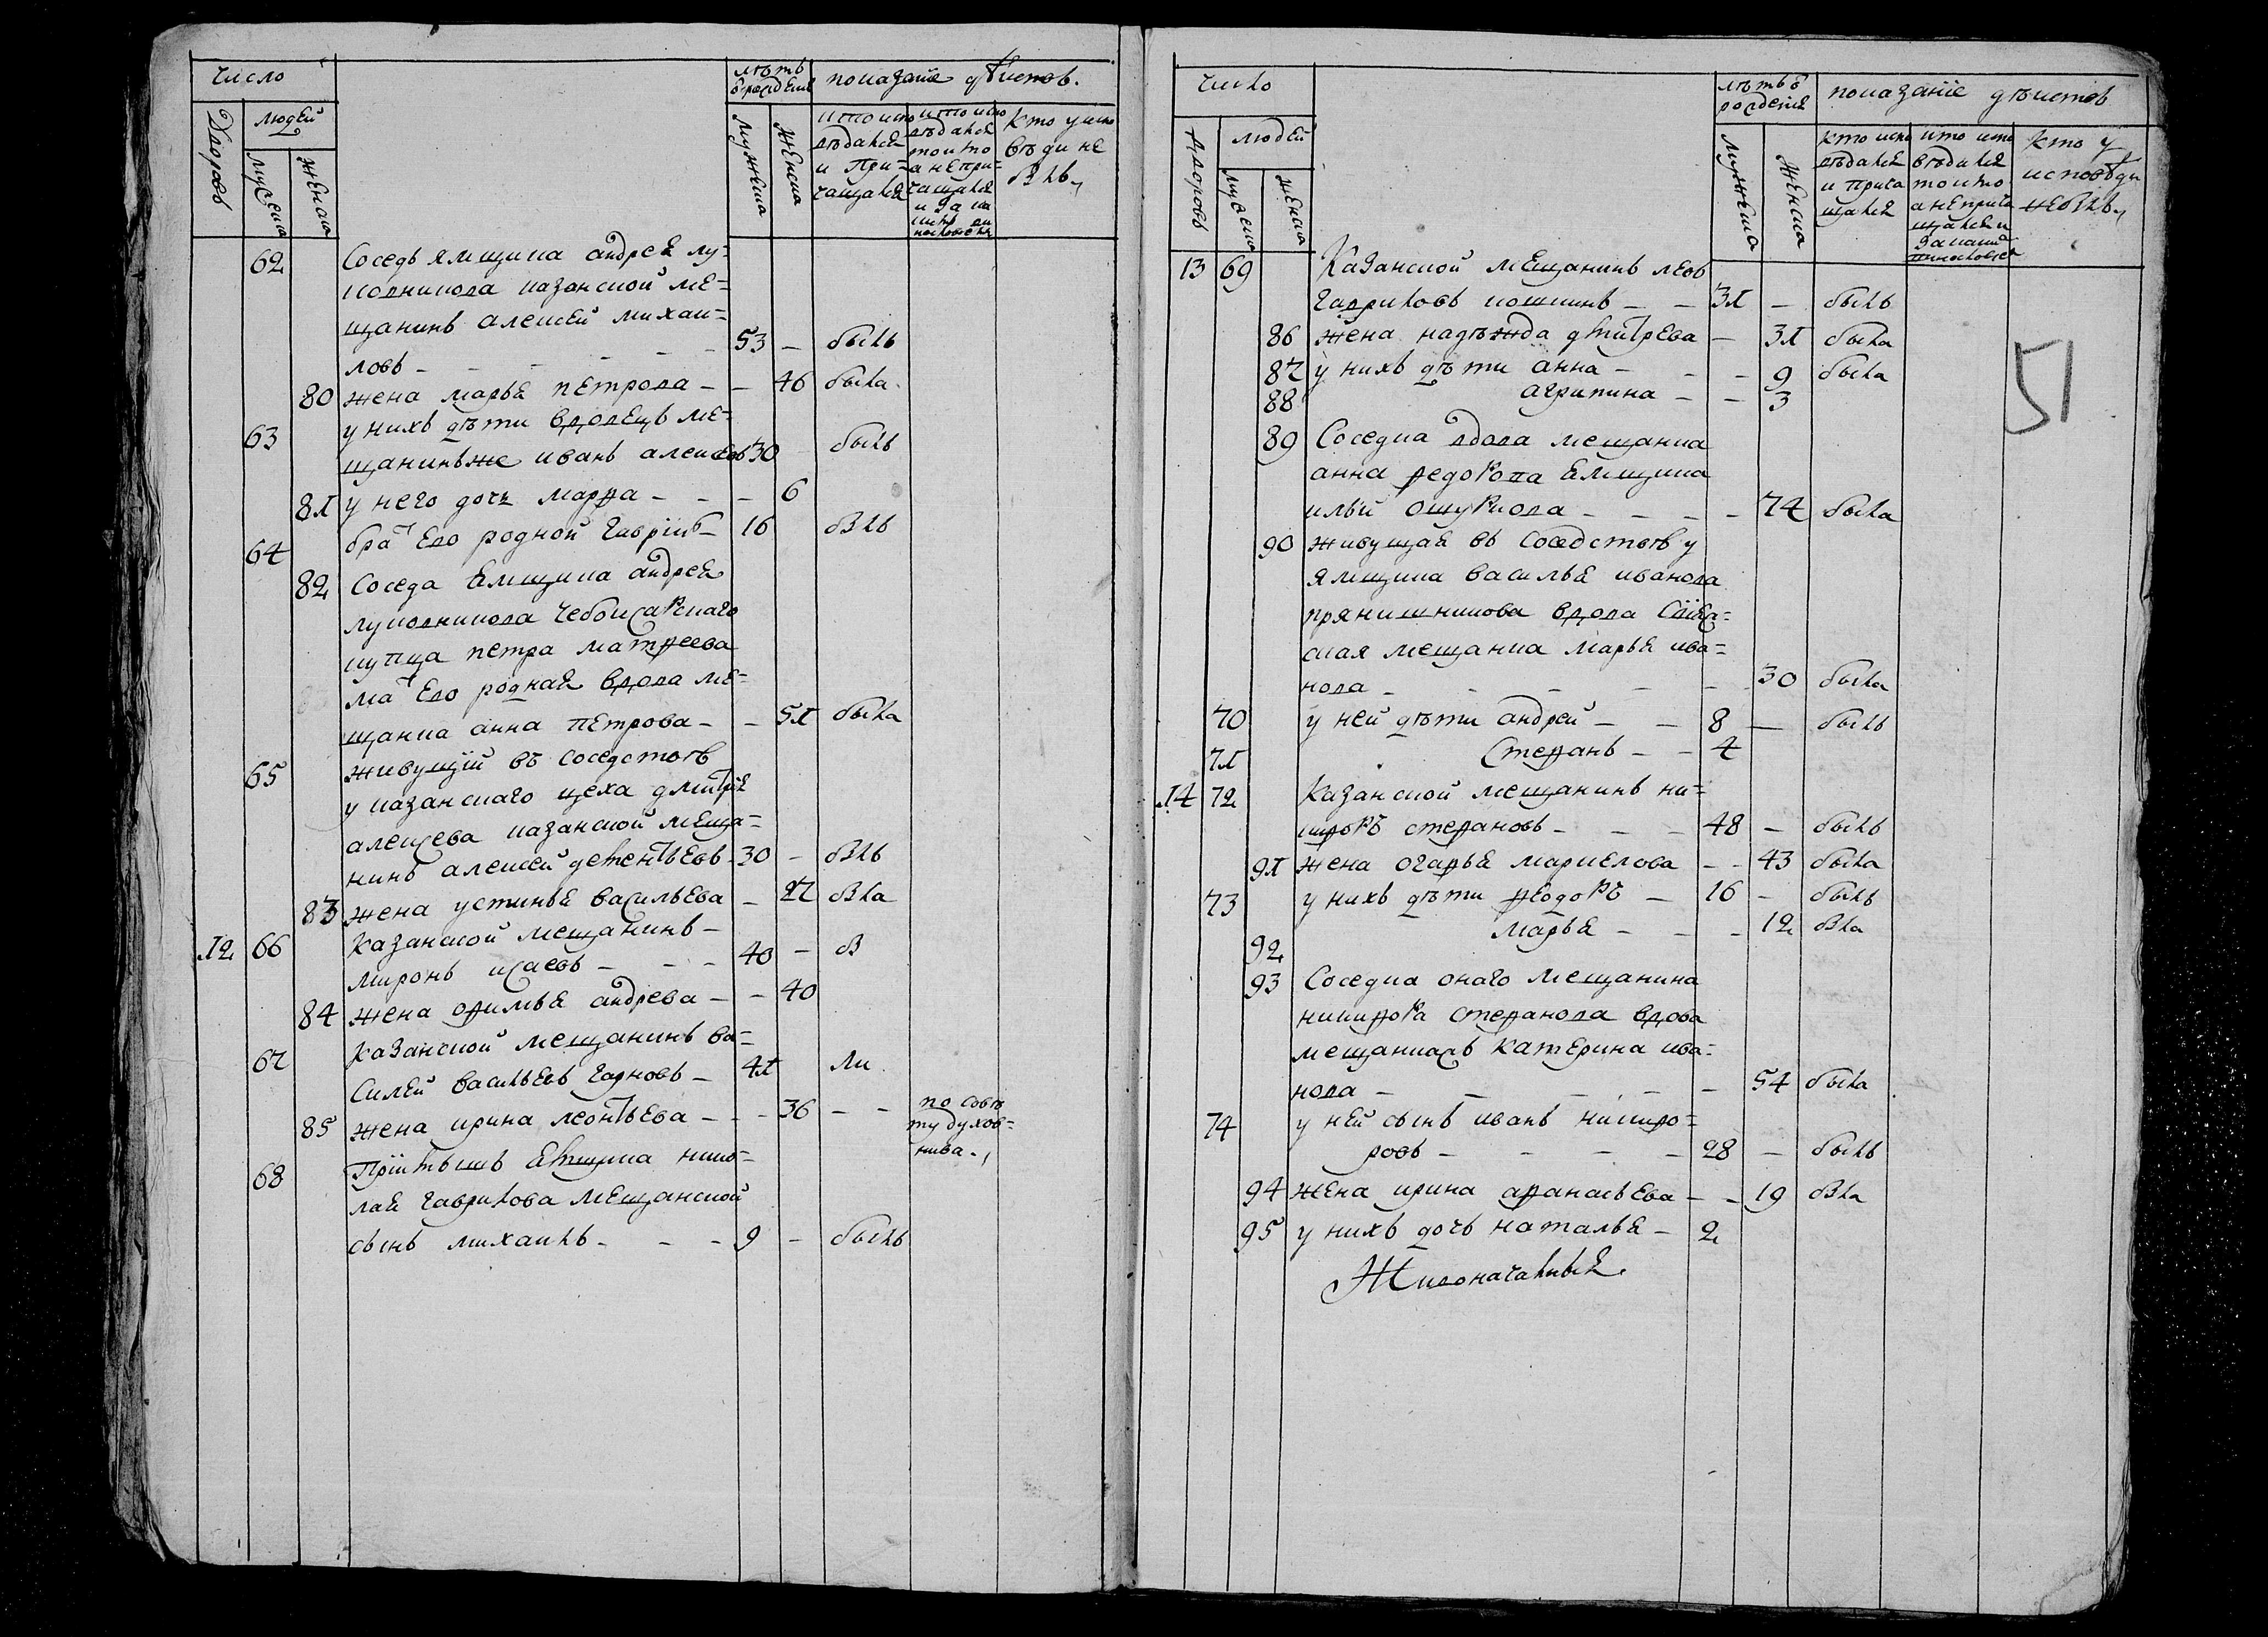 число
лѣтъ
ѿ рожденїя
показанїе дѣйствъ.
Дворовъ
людей
мужеска
женска
мужеска
женска
кто испо
вѣдался
и при=
чащался
кто испо
вѣдался
токмо
а не при=
чащался
и за ка
кто у испо
вѣди не
былъ
62 Соседъ ямщика андрея лу=
кодникова казанской ме=
щанинъ алексей михаи=
ловъ - - - - 53 - былъ
80 жена марья петрова - - 46 была
63 у нихъ дѣти вдовецъ ме=
щанинъ же иванъ алексеевъ 30 былъ
81 у него дочь марфа - - - 6
64 братъ ево родной гаврилъ - 16 былъ
82 Соседа ямщика андрея
лукодникова чебоксарскаго
купца петра матфеева
мать ево родная вдова ме=
щанка анна петрова - - 51 была
65 живущїй въ соседствѣ
у казанскаго цеха дмитрїя
алексева казанской меща=
нинъ алексей дементьевъ - 30 - былъ
83 жена устинья васильева - 27 была
12 66 казанской мещанинъ -
миронъ исаевъ - - - 40 - б
84 жена офимья андрева - - 40
67 казанской мещанинъ ва=
силей васильевъ 41
85 жена ирина леонтьева - - - 36 - - по совѣ
ту духов=
ника.
68 Прїимышъ ямщика нико=
лая гаврилова мещанской
сынъ михаилъ - - - 9 - былъ
число
лѣтъ ѿ
рожденїя
показанїе дѣйствъ
дворовъ
людей
мужеска
женска
мужеска
женска
кто испо
вѣдался
и прича
щался
кто испо
вѣдался
токмо
а не прича
щался и
за каки
кто у
исповѣди
не былъ
51
13 69 казанской мещанинъ левъ
гавриловъ кошкинъ - - 31 - былъ
86 жена надѣжда дмитрева - 31 была
87 у нихъ дѣти анна - - - 9 была
88 агрипина - - 3
89 Соседка вдова мещанка
анна федорова ямщика
ильи - - - - 74 была
90 живущая въ соседствѣ у
ямщика василья иванова
прянишникова вдова свїяс=
ская мещанка марья ива=
нова - - - - - 30 была
70 у ней дѣти андрей - - 8 - былъ
71 Стефанъ - - 4
14 72 казанской мещанинъ ни=
кифоръ стефановъ - - - 48 - былъ
91 жена агафья маркелова - - 43 была
73 у нихъ дѣти феодоръ - 16 - былъ
92 марья - - - 12 была
93 Соседка онаго мещанина
никифора стефанова вдова
мещанская катерина ива=
нова - - - - - 54 была
74 у ней сынъ иванъ никифо=
ровъ - - - - - 28 - былъ
94 жена ирина афанасьева - - 19 была
95 у нихъ дочь наталья - 2